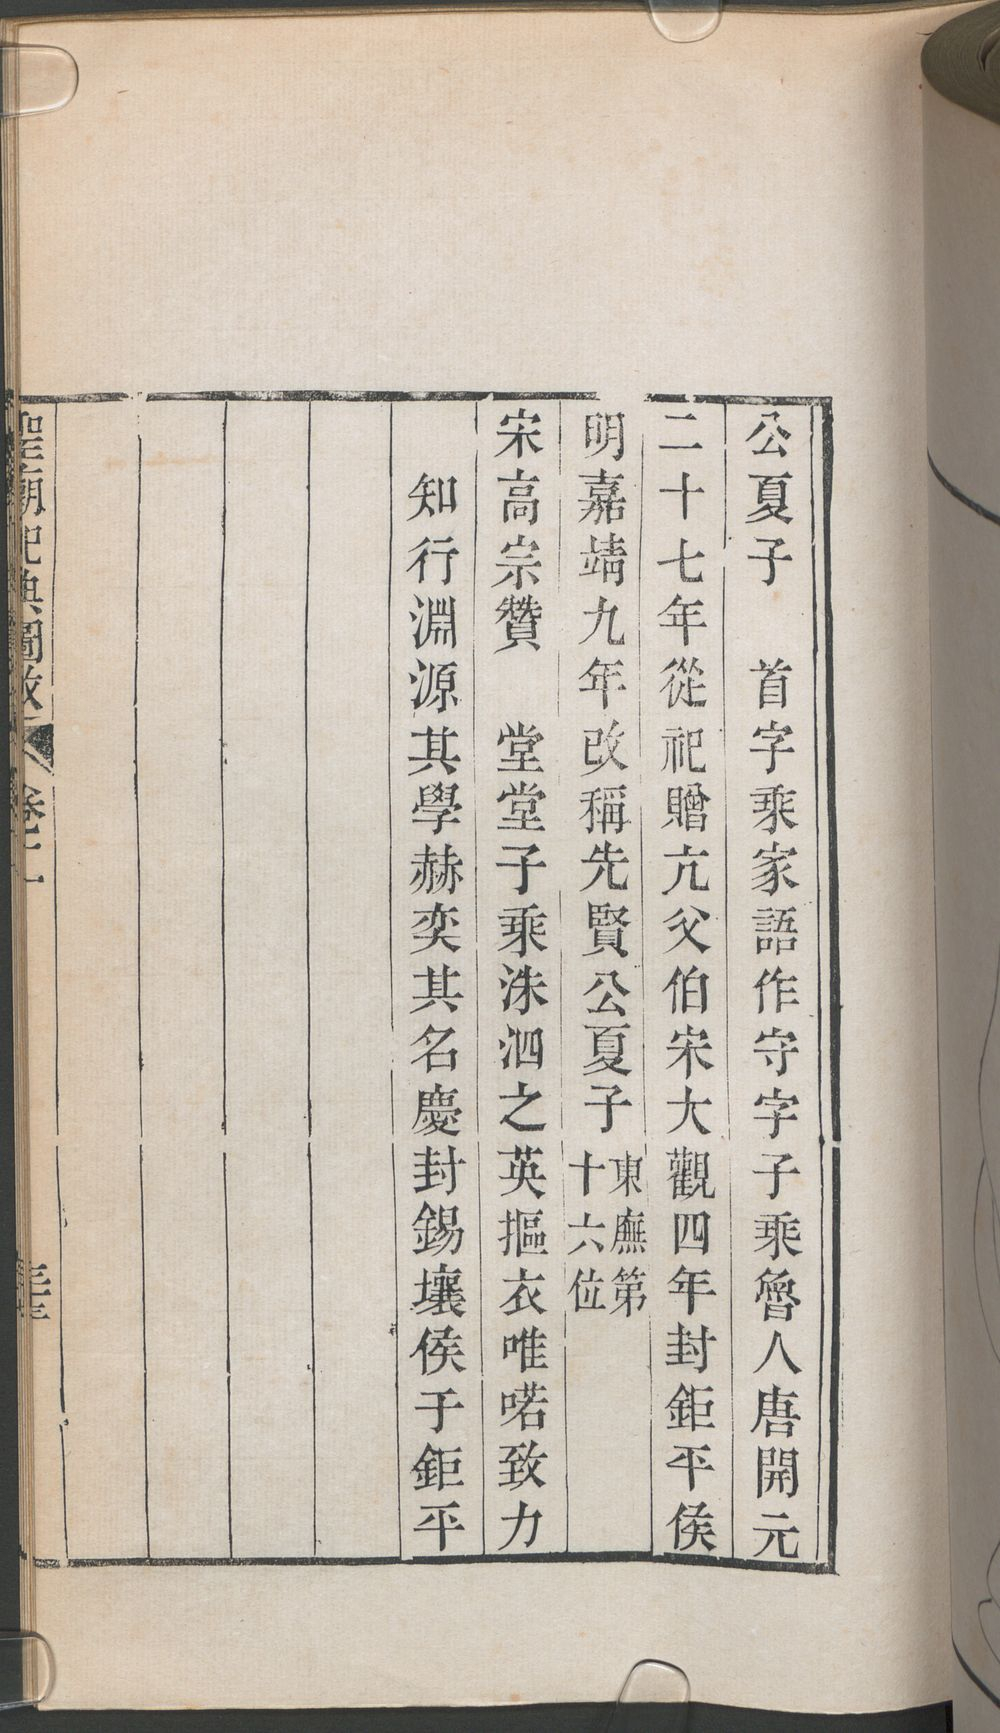 公夏子　首字乘家語作守字子乘魯人唐開元
二十七年從祀贈亢父伯宋大觀四年封鉅平侯
明嘉靖九年改稱先賢公夏子東廡第十六位
宋高宗贊　堂堂子乘洙泗之英摳衣唯喏致力
知行淵源其學赫奕其名慶封錫壤侯于鉅平
聖廟祀典圖攷 卷二